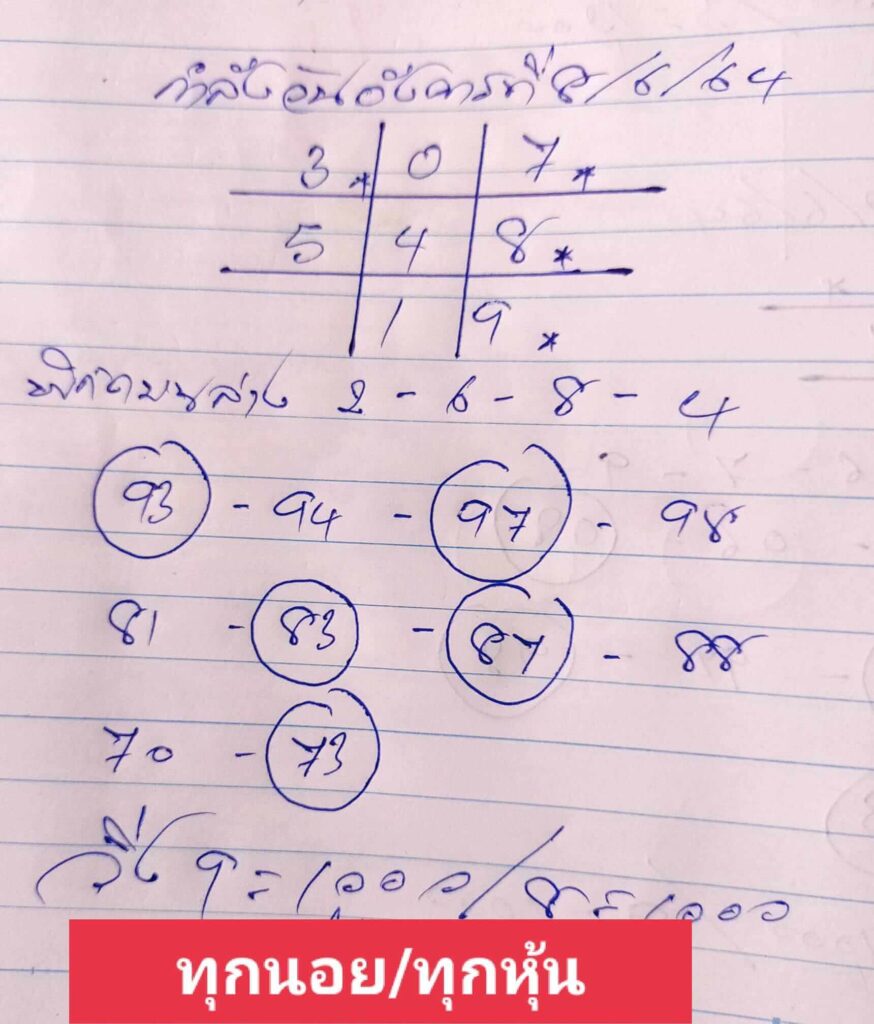 กำลังวันอังคารที่ 8/6/64
3* 0 7*
5 4 8*
1 9*
บนล่าง 2 - 6 - 8 - 4
93 - 94 - 97 - 98
81 - 83 - 87 - 88
70 - 73
วิ่ง 9 = 1,000/8 = 1000
ทุกนอย/ทุกหุ้น